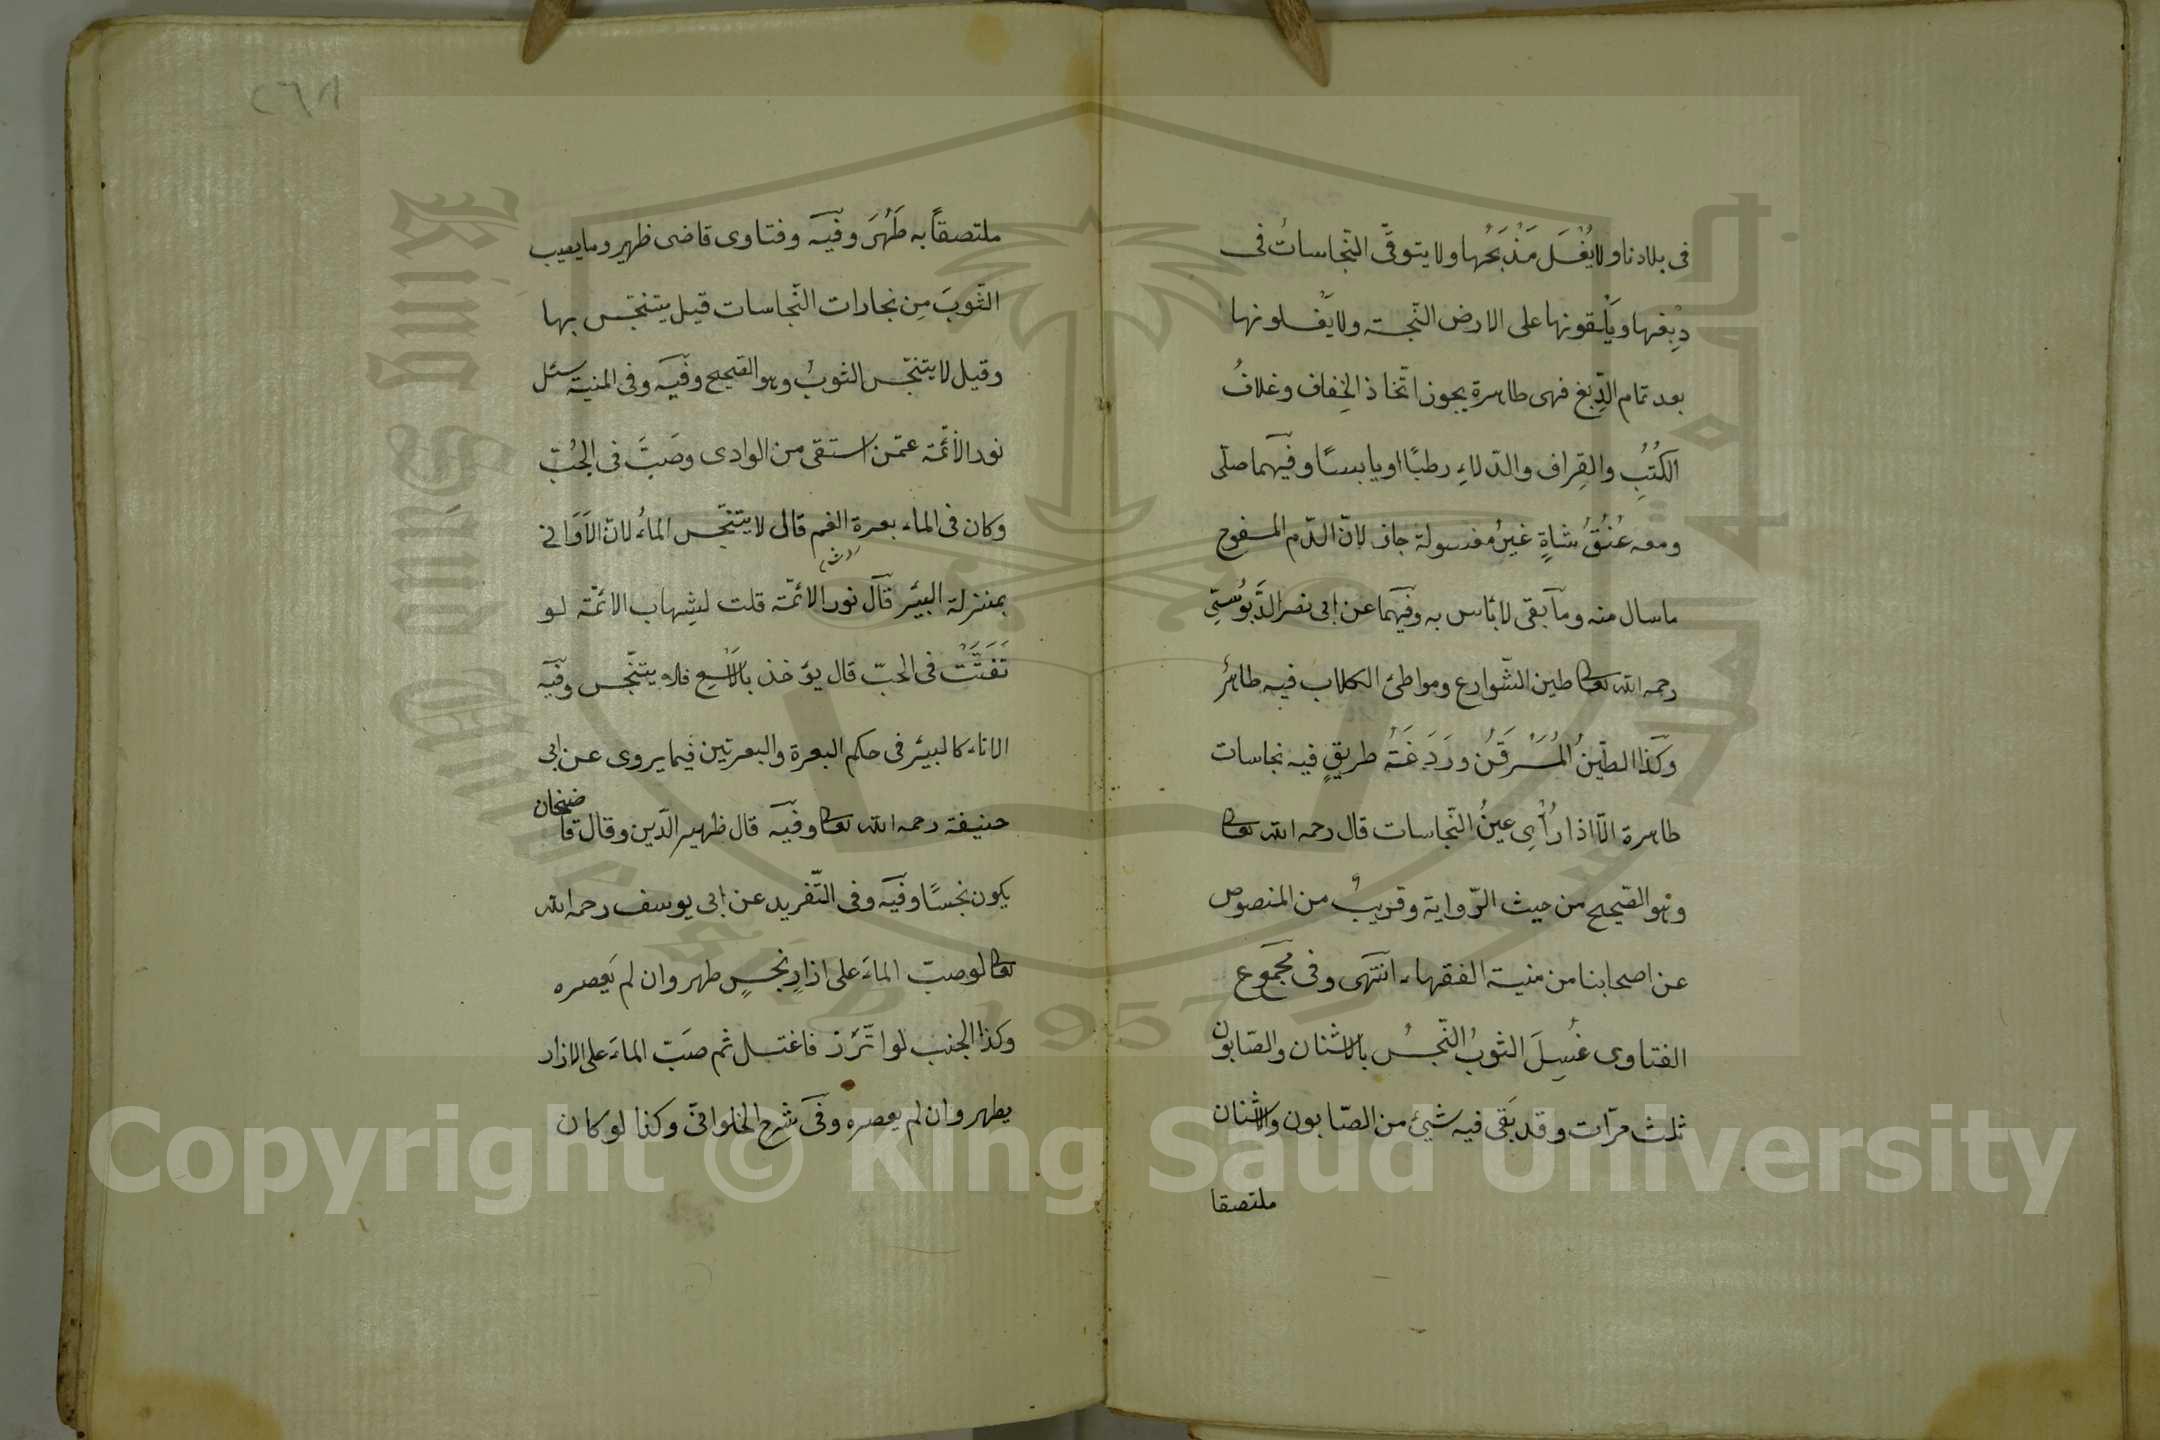 في بلادنا ولا يُغْسَل مَذْبَحُها ولا يتوقّى النّجاسات في
دِبْغها ويُلْقونها على الارض النّجسة ولا يَغْسلونها
بعد تمام الدِّبغ فهى طاهرة يجوز اتّخاذ الخِفاف وغلافُ
الكتُبِ والقِراف والدّلاءِ رطبًا او يابسًا وفيهما صلّى
ومعه عُنُقُ شاةٍ غيرُ مغسولة جاز لانّ الدّم المسفوح
ما سال منه وما بقى لا بأس به وفيهما عن ابى نصر الدَّبُوسىّ
رحمه الله تعالى طين الشّوارع ومواطئ الكلاب فيه طاهر
وكذا الطّينُ المُسَرْقَنُ ورَدَغَةُ طريقٍ فيه نجاسات
طاهرة الّا اذا رُأى عينُ النّجاسات قال رحمه الله تعالى
وهو الصّحيح من حيث الرّواية وقريبٌ من المنصوص
عن اصحابنا من منية الفقهاء انتهى وفى مجموع
الفتاوى غُسِلَ الثوبُ النّجسُ بالاشنان والصّابون
ثلث مرّات وقد بَقى فيه شيئ من الصّابون والاشنان
ملتصقا
ملتصقاً به طَهُرَ وفيه وفتاوى قاضى ظهير وما يصيب
الثّوبَ مِن بخارات النّجاسات قيل يتنجّس بها
وقيل لا يتنجّس الثوبُ وهو الصّحيح وفيه وفى المنية سئل
نور الأئمّة عمّن استقى من الوادى وصَبَّ فى الحُبّ
وكان فى الماء بعرة الغنم قال لا يتنجّس الماءُ لانّ الاَوَانى
بمنزلة البئر قال نور الائمّة قلت لشِهاب الائمّة لو
تَفَتَّتْ فى الحبّ قال يؤخذ بالاَوْسع فلا يتنجّس وفيه
الاناء كالبئر فى حكم البعرة والبعرتين فيما يروى عن ابى
حنيفة رحمه الله تعالى وفيه قال ظهير الدّين وقال قاضيخان
يكون نجسًا وفيه وفى التّفريد عن ابى يوسف رحمه الله
تعالى لو صبّ الماءَ على ازارٍ نجسٍ طهر وان لم يَعصره
وكذا الجنب لو اتّزر فاغتسل ثم صبّ الماءَ على الازار
يطهر وان لم يعصره وفى شرح الحلوانىّ وكذا لو كان
Copyright © King Saud University